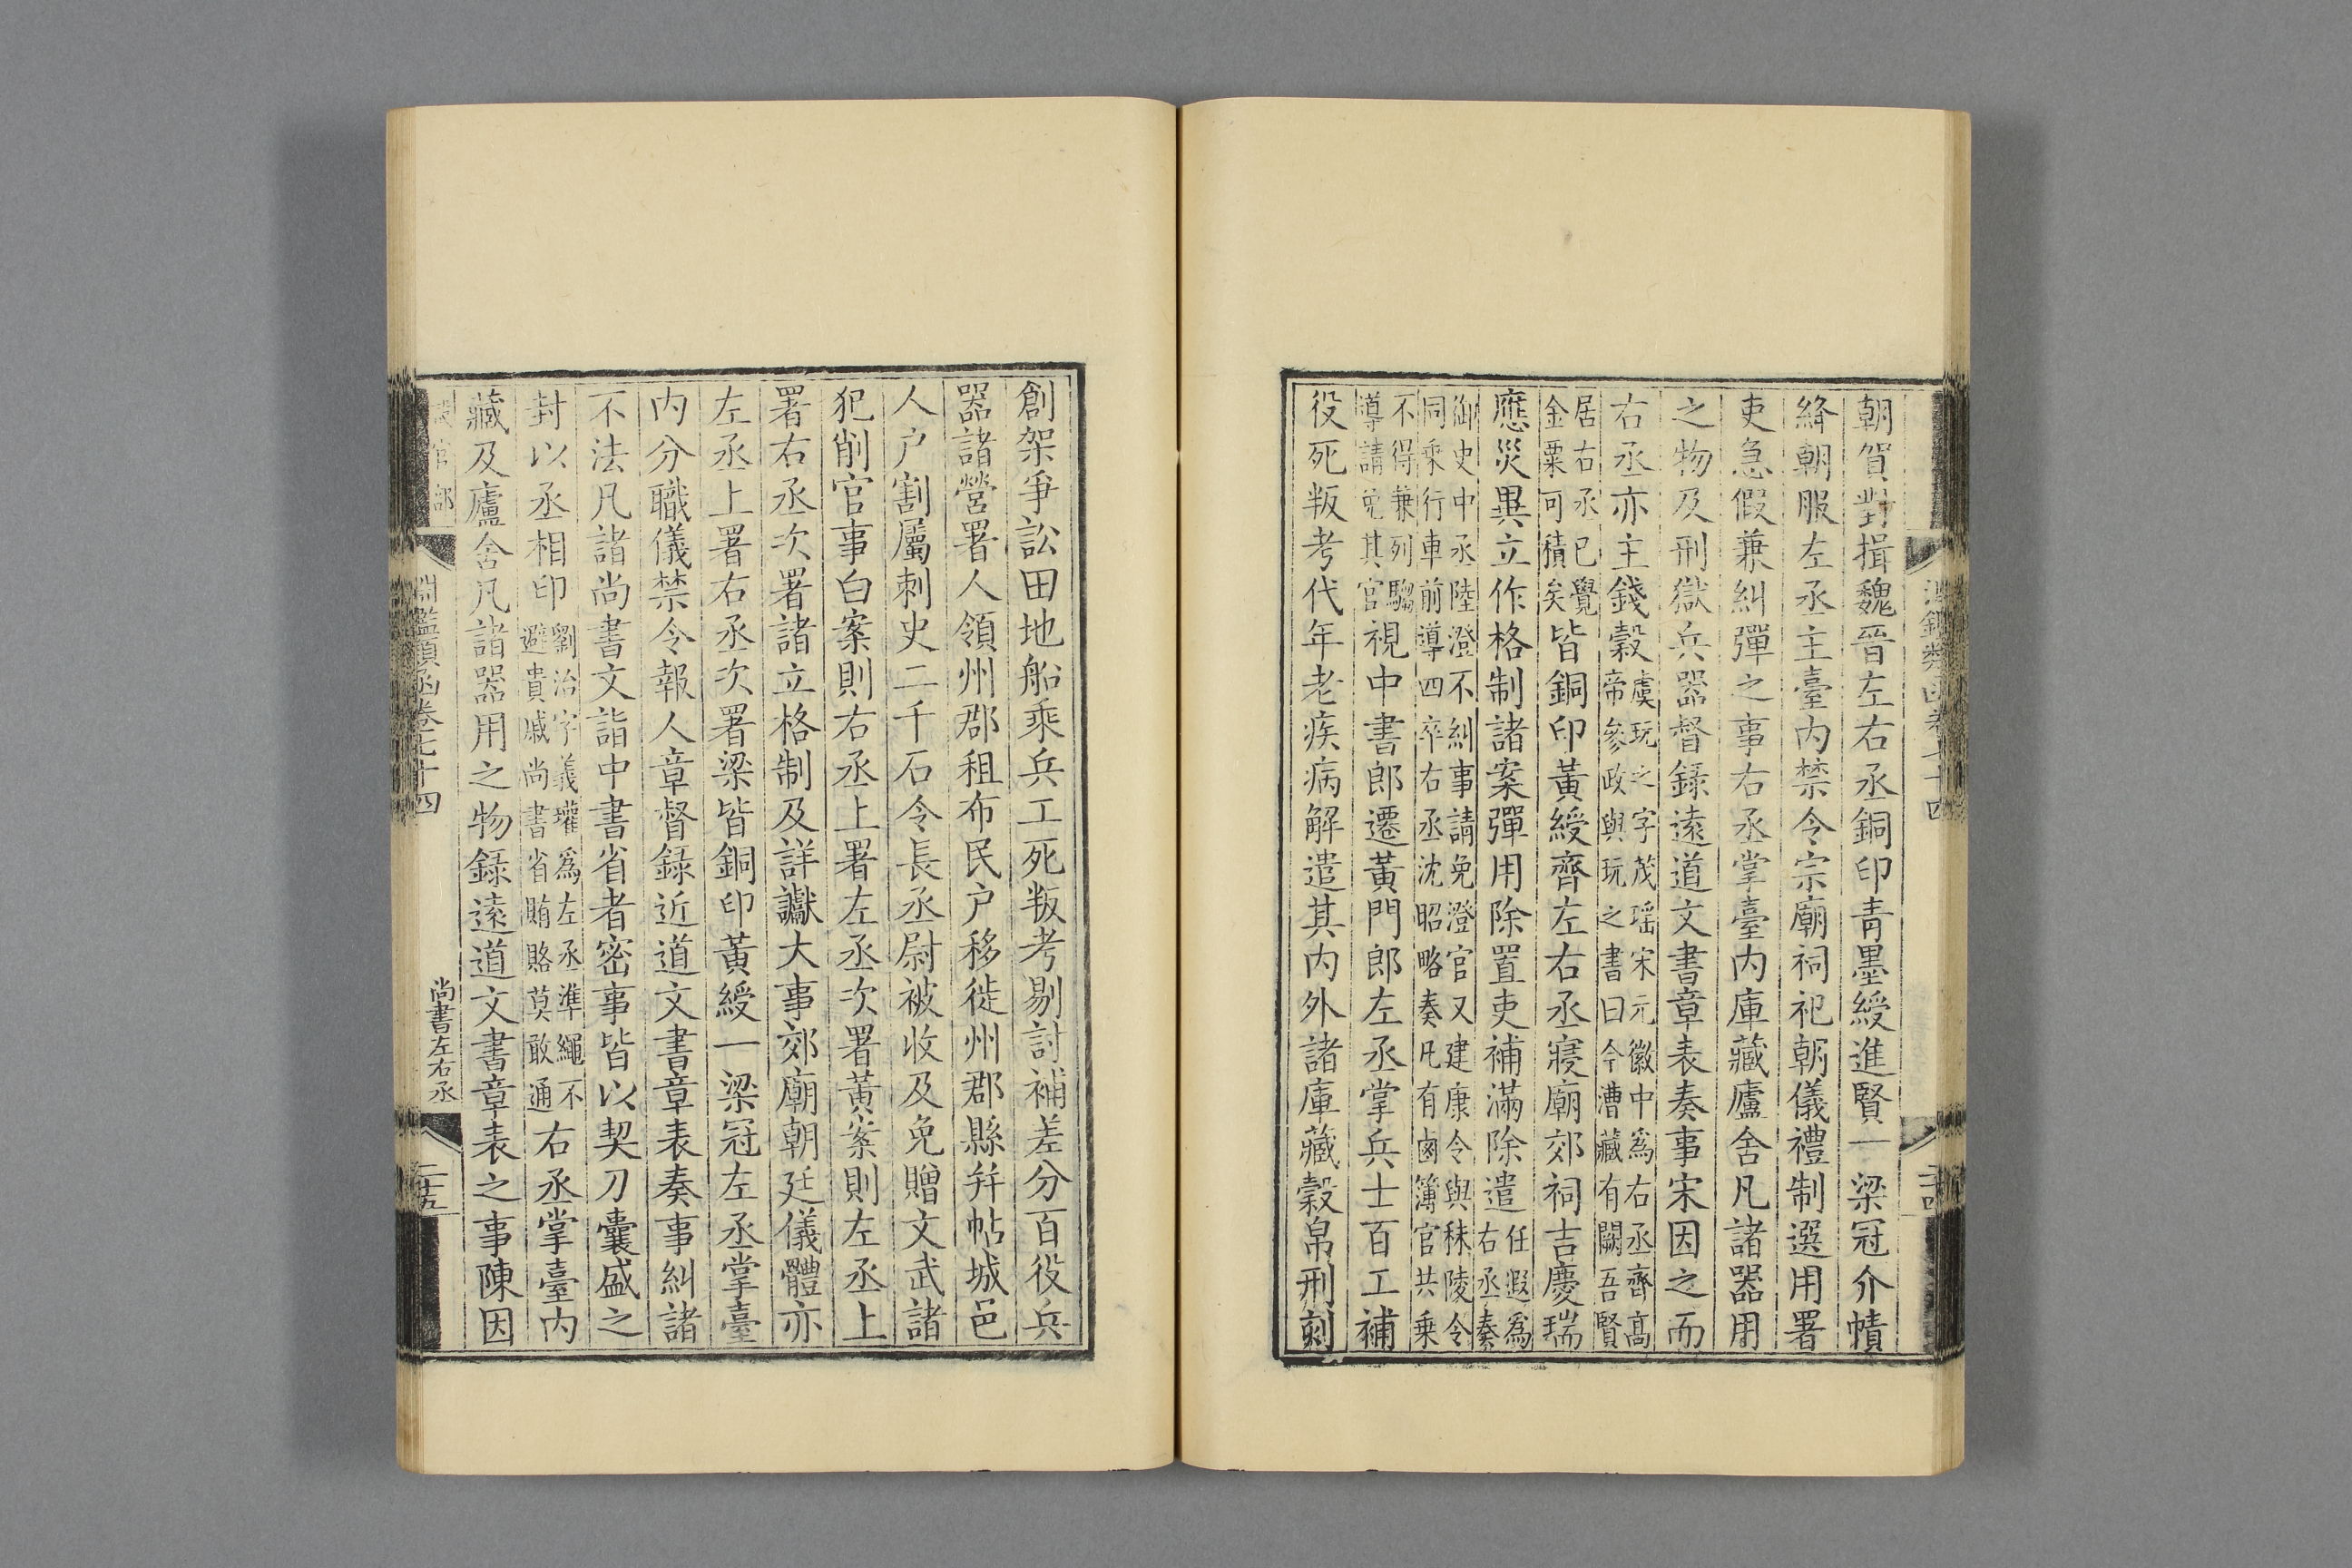 朝賀對揖魏晉左右丞銅印青墨綬進賢一梁冠介幘
絳朝服左丞主臺內禁令宗廟祠祀朝儀禮制選用署
吏急假兼糾彈之事右丞掌臺內庫藏廬舍凡諸器用
之物及刑獄兵器督錄遠道文書章表奏事宋因之而
右丞亦主錢穀虞玩之字茂瑶宋元徽中為右丞齊髙
帝參政與玩之書曰今漕藏有闕吾賢
居右丞已覺
金粟可積矣皆銅印黃綬齊左右丞寢廟郊祠吉慶瑞
應災異立作格制諸案彈用除置吏補滿除遣任遐為
右丞奏
御史中丞陸澄不糾事請免澄官又建康令與秣陵令
同乘行車前導四卒右丞沈昭略奏凡有鹵簿官共乘
不得兼列騶
導請免其官視中書郎遷黃門郎左丞掌兵士百工補
役死叛考代年老疾病解遣其內外諸庫藏穀帛刑刻
創架爭訟田地船乘兵工死叛考剔討補差分百役兵
器諸營署人領州郡租布民户移徙州郡縣并帖城邑
人户割屬刺史二千石令長丞尉被收及免贈文武諸
犯削官事白案則右丞上署左丞次署黃案則左丞上
署右丞次署諸立格制及詳讞大事郊廟朝廷儀體亦
左丞上署右丞次署梁皆銅印黃綬一梁冠左丞掌臺
內分職儀禁令報人章督錄近道文書章表奏事糾諸
不法凡諸尚書文詣中書省者密事皆以契刀囊盛之
封以丞相印劉治字義瓘為左丞準繩不
避貴戚尚書省賄賂莫敢通右丞掌臺內
藏及廬舍凡諸器用之物錄遠道文書章表之事陳因
官部
淵鑑類函卷七十四
尚書左右丞
二十五